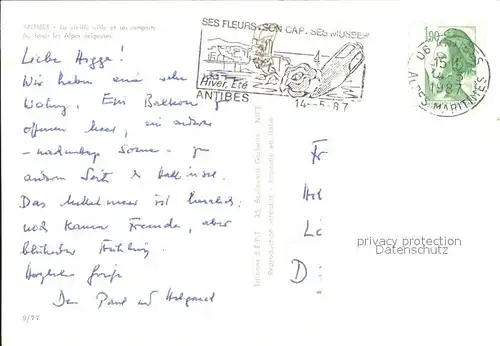 ANTIBES - La vieille ville et les remparts
Au fond: les Alpes neigeuses
Liebe Higge!
Wir haben eine sehr
Wohng. Ein Balkon z
offenen Meer, ein anderer
- nachmittags Sonne - zur
anderen Seite der Halbinsel.
Das Mittelmeer ist herrlich
noch kaum Fremde, aber
blühender Frühling.
Herzliche Grüße
Dein Paul und Helgard
9/77
SES FLEURS, SON CAP, SES MUSEES
Hiver, Eté
ANTIBES
14--5-87
1,90
06 ANTIBES
15H
14-5
1987
ALPES-MARITIMES
Editions S.E.P.T. 35, Boulevard Gorbella - NICE
Reproduction interdite - Imprimé en Italie
Fr
Hel
Li
D
privacy protection
Datenschutz